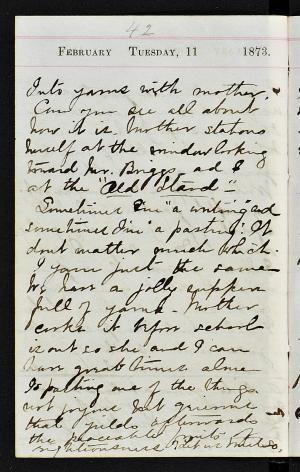 42
FEBRUARY TUESDAY, 11 1873.
Into yarns with mother.
Can you see all about
how it is. Mother stations
herself at the window looking
toward Mr. Briggs, ad I
at the "Old Stand."
Sometimes I'm "a writing" and
sometimes I'm "a pasting." It
dont matter much which.
I yarn just the same
We have a jolly supper
full of yarns. Mother
cooks it before school
is out so she and I can
have great times alone
Is pasting one of the things
not joyous but grievous
that yields afterwards
the peaceable fruits of
righteousness